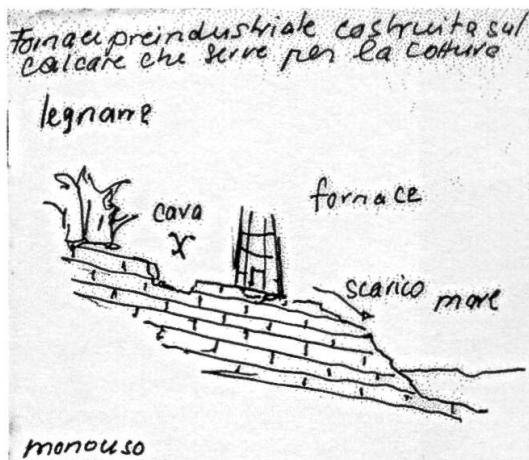 Fornace preindustriale costruita sul
calcare che serve per la cottura
legname
cava
fornace
scarico
mare
monouso